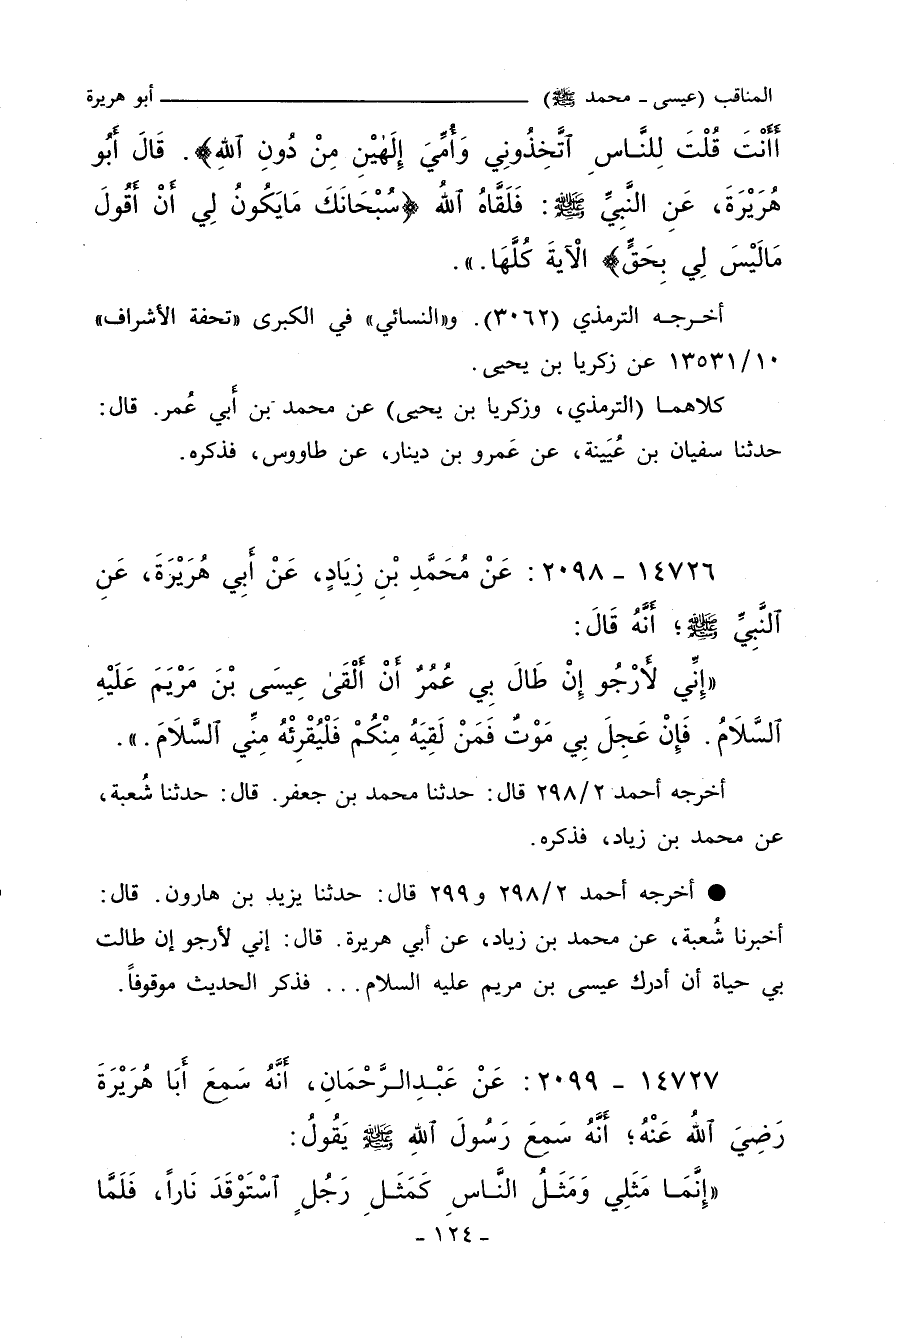 المناقب (عيسى - محمد ﷺ) ــــــــــــــــــــ أبو هريرة
أَأَنْتَ قُلْتَ لِلنَّاسِ ٱتَّخِذُونِي وَأُمِّيَ إِلَهَيْنِ مِنْ دُونِ ٱللهِ﴾. قَالَ أَبُو
هُرَيْرَةَ، عَنِ النَّبِيِّ ﷺ: فَلَقَّاهُ ٱللهُ ﴿سُبْحَانَكَ مَايَكُونُ لِي أَنْ أَقُولَ
مَالَيْسَ لِي بِحَقٍّ﴾ الْآيةَ كُلَّهَا.».
أخرجه الترمذي (٣٠٦٢). و«النسائي» في الكبرى «تحفة الأشراف»
١٣٥٣١/١٠ عن زكريا بن يحيى.
كلاهما (الترمذي، وزكريا بن يحيى) عن محمد بن أَبي عُمر. قال:
حدثنا سفيان بن عُيَينة، عن عَمرو بن دينار، عن طاووس، فذكره.
١٤٧٢٦ - ٢٠٩٨: عَنْ مُحَمَّدِ بْنِ زِيَادٍ، عَنْ أَبِي هُرَيْرَةَ، عَنِ
ٱلنَّبِيِّ ﷺ؛ أَنَّهُ قَالَ:
«إِنِّي لَأَرْجُو إِنْ طَالَ بِي عُمُرٌ أَنْ أَلْقَىٰ عِيسَى بْنَ مَرْيَمَ عَلَيْهِ
ٱلسَّلَامُ. فَإِنْ عَجِلَ بِي مَوْتٌ فَمَنْ لَقِيَهُ مِنْكُمْ فَلْيُقْرِئْهُ مِنِّي ٱلسَّلَامَ.».
أخرجه أحمد ٢٩٨/٢ قال: حدثنا محمد بن جعفر. قال: حدثنا شُعبة،
عن محمد بن زياد، فذكره.
● أخرجه أحمد ٢٩٨/٢ و٢٩٩ قال: حدثنا يزيد بن هارون. قال:
أخبرنا شُعبة، عن محمد بن زياد، عن أبي هريرة. قال: إني لأرجو إن طالت
بي حياة أن أدرك عيسى بن مريم عليه السلام... فذكر الحديث موقوفاً.
١٤٧٢٧ - ٢٠٩٩: عَنْ عَبْدِالرَّحْمَانِ، أَنَّهُ سَمِعَ أَبَا هُرَيْرَةَ
رَضِيَ ٱللهُ عَنْهُ؛ أَنَّهُ سَمِعَ رَسُولَ ٱللهِ ﷺ يَقُولُ:
«إِنَّمَا مَثَلِي وَمَثَلُ النَّاسِ كَمَثَلِ رَجُلٍ ٱسْتَوْقَدَ نَاراً، فَلَمَّا
- ١٢٤ -